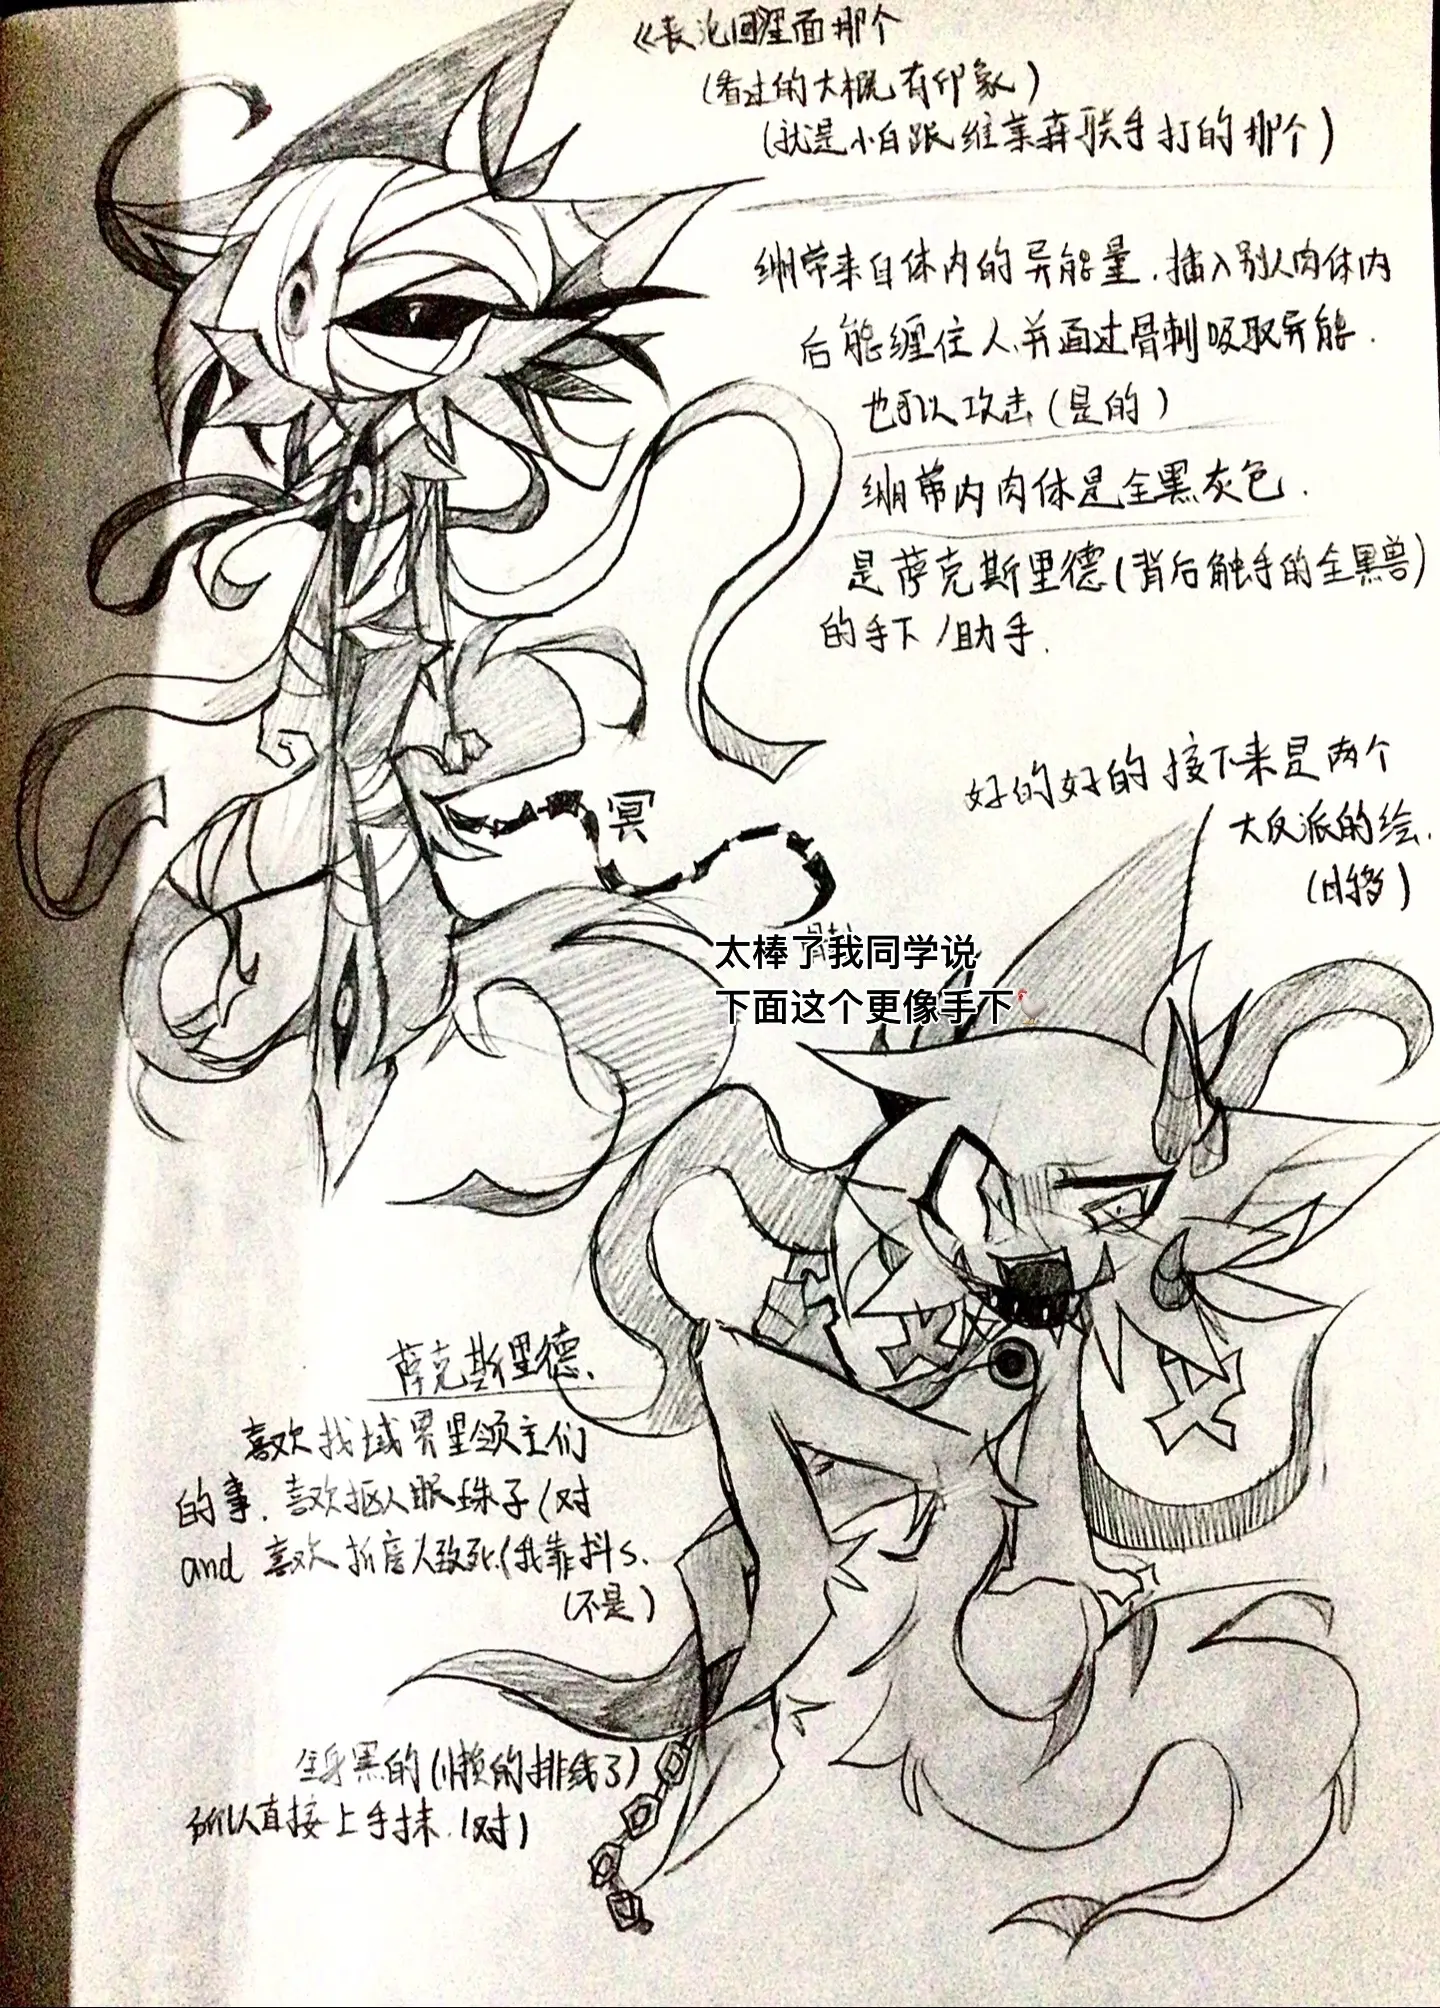 里面那个
(看过的大概有印象)
(就是小白跟维莱森联手打的那个)
绷带来自体内的异能量.插入别人肉体内
后能缠住人并通过骨刺吸取异能.
也可以攻击(是的)
绷带内肉体是全黑灰色.
是萨克斯里德(背后触手的全黑兽)
的手下/助手.
好的好的接下来是两个
大反派的绘.
冥
太棒了我同学说
下面这个更像手下🐔
萨克斯里德.
喜欢找域界里领主们
的事.喜欢抠人眼珠子(对
and 喜欢折磨人致死.(我靠抖s.
(不是)
全身黑的(懒的排线了)
所以直接上手抹.(对)